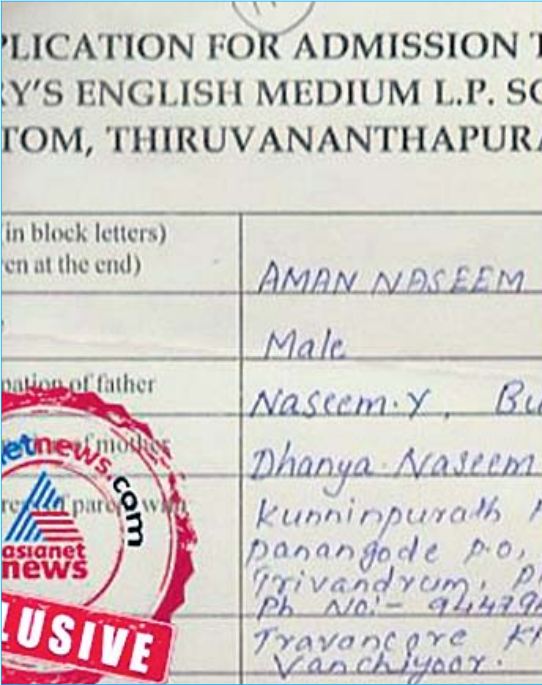 PLICATION FOR ADMISSION T
RY'S ENGLISH MEDIUM L.P. SC
TOM, THIRUVANANTHAPURA
in block letters)
en at the end)
AMAN NASEEM
Male
pation of father
Naseem.Y, Bu
of mother
Dhanya Naseem
Kunninpurath
Panangode P.O,
Trivandrum,
Ph No:- 94479
Travancore
Vanchiyoor.
etnews.com
asianet
news
LUSIVE